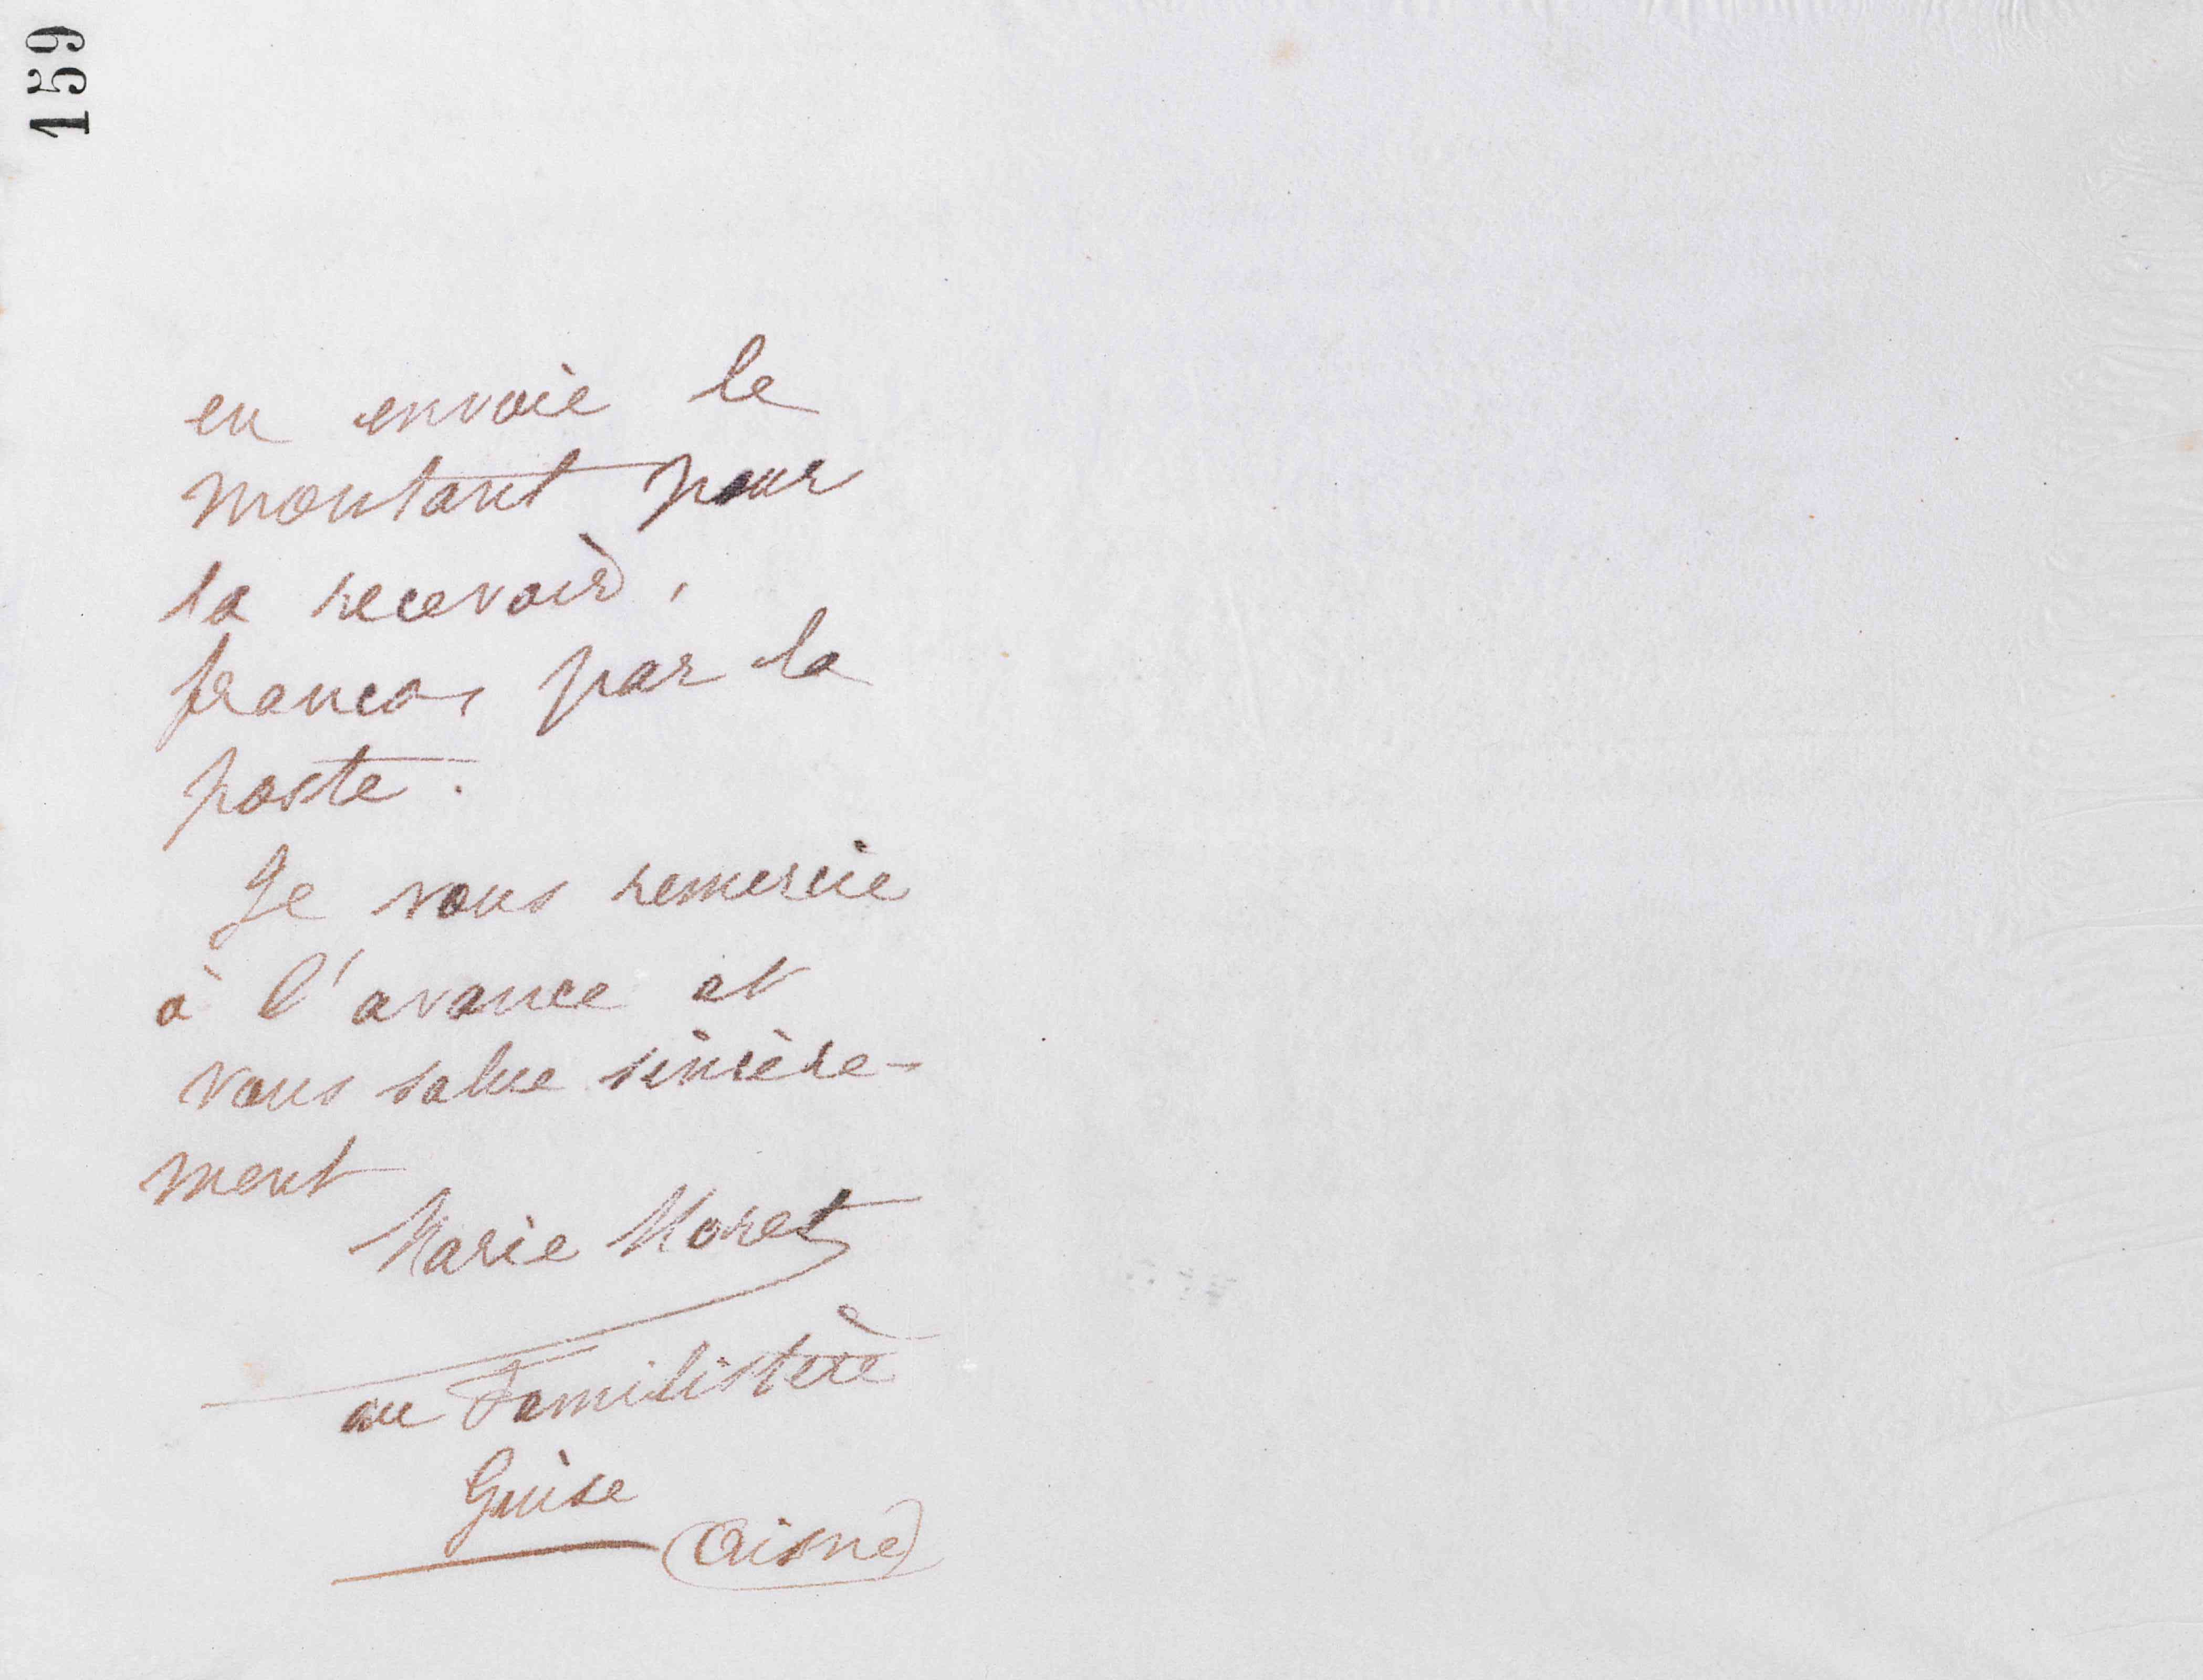 159
en envoie le
montant pour
la recevoir,
franco, par la
poste.
Je vous remercie
à l'avance et
vous salue sincère-
ment
Marie Moret
au Familistère
Guise
(Aisne)